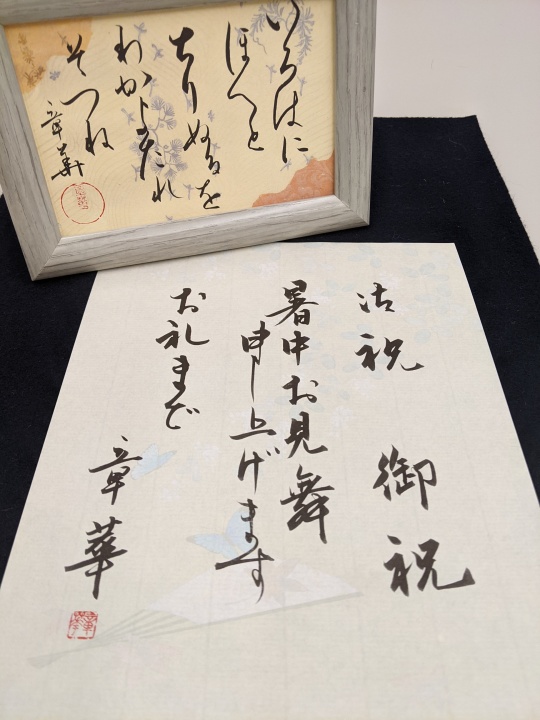 いろはに
ほへと
ちりぬるを
わかよたれ
そつね
章華
御祝 御祝
暑中お見舞
申し上げます
お礼まで
章華